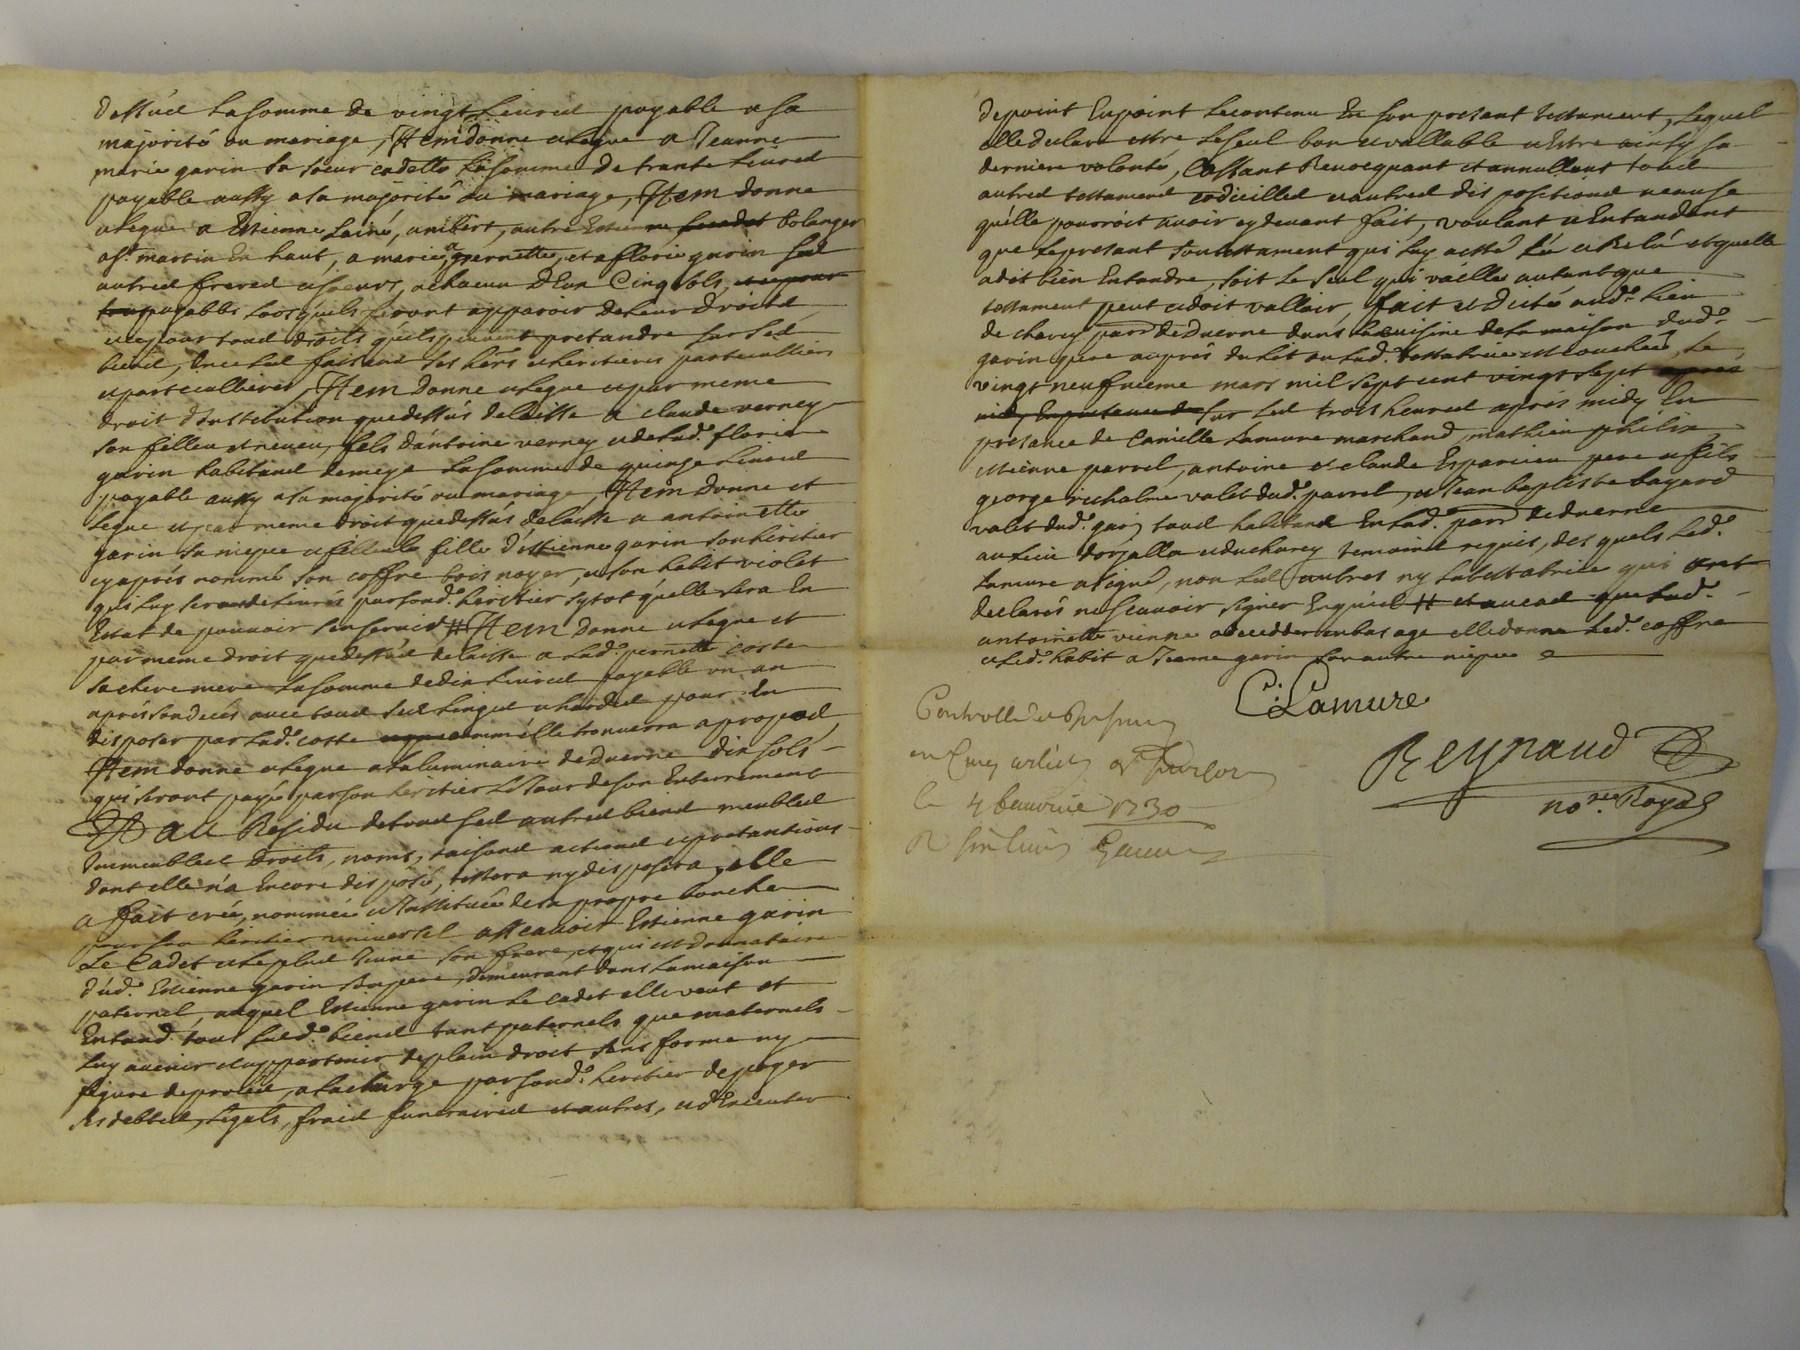 dessúd La somme de vingt Liurud payable a sa
majorité ou mariage, Item donne et Legue a Jeanne
marie garin sa soeur cadette La somme de trante Liured
payable aussy a sa majorité ou mariage, Item donne
et Legue a Estienne Lainé, autre Estienne bolanger
a st martin En haut, a marie, a pernette, et a florie garin sed
autred frered et soeurs, a chacun D'Eux Cinq sols,
payable Lors quils feront apparoir de Leur droitd
et pour toud droits quils peuvent pretandre sur sed
biend, faisand ses hers et heritiers particulliers
et particullieres, Item donne et Legue et par meme
droit d'Institution que dessús delaisse a claude verney
son filleu et neueu, fils d'antoine verney et de Lad.e florie
garin habitand de meys La somme de quinze Liurud
payable aussy a sa majorité ou mariage, Item donne et
Legue et par meme droit que dessús delaisse a antoinette
garin sa niepce et filleule fille d'Estienne garin son heritier
cy aprés nommé son coffre bois noyer, et son habit violet
qui Luy seront deLiurés par sond.e heritier sytot qu'elle sera En
Estat de pouuoir s'en seruir # Item donne et Legue et
par meme droit que dessúd delaisse a Lad.e pernette coste
sa chere mere La somme de dix Liurud payable un an
aprés son decés auec toud sed Linged et harded pour En
disposer par Lad.e coste comm'elle trouuera a propod,
Item donne et Legue a La luminaire de Duerne dix sols
qui seront payé par son heritier Le Jour de son Enterrement
Et au Residu de toud sed autred biend meubled
Immeubled droits, noms, raisond actiond et pretantions
dont elle n'a Encore disposé, ny disposera, elle
a fait créé, nommée et Instituée de sa propre bouche
pour son heritier universel assauoir Estienne garin
Le Cadet et Le plud Jeune son frere, et qui est donnataire
dúd.e Estienne garin son pere, demeurant dans La maison
paternel, auquel Estienne garin Le cadet elle veut et
Entand tous sud.e biend tant paternels que maternels
Luy auenir et appartenir de plain droit sans forme ny
figure de procéd, a La charge par sond.e heritier de payer
ses debted, Legats, fraid funeraired et autres, et d'Executer
de point En point Le contenu En son present testament, Lequel
elle declare estre Le seul bon et vallable et Estre ainsy sa
derniere volonté, Cassant Reuocquant et annullant toud
autred testamend codicilled et autred dispositiond
qu'elle pourroit auoir cy deuant fait, voulant et Entandant
que Le presant son testament qui Luy a esté Lú et Relú et quelle
a dit bien Entandre, soit Le seul qui vaille autant que
testament peut et doit valloir, fait et dicté aud.e Lieu
de charey parr. de Duerne dans La cuisine de La maison dud.e
garin pere auprés du Lit ou Lad.e testatrice est couchée, Le
vingt neufuieme mars mil sept cent vingt sept
sur Led trois heured apres midy En
presance de Camille Lamure marchand, mathieu philix,
Etienne parrel, antoine et claude Esparcieu pere et fils
george richalme valet dud.e parrel, et Jean baptiste bayard
valet dud.e garin toud habitand En Lad.e parr. de duerne
au Lieu dorjalla et du charey temoind requis, des quels Led.e
Lamure a signé, non Led autres ny La testatrice qui ont
declarés ne scauoir signer Enquisd # et au cas que Lad.e
antoinette vienne a decedder en bas age elle donne Led.e coffre
et Led.e habit a Jeanne garin son autre niepce
C: Lamure
Reynaud
no.re Royal
Controllé
le 4 1730